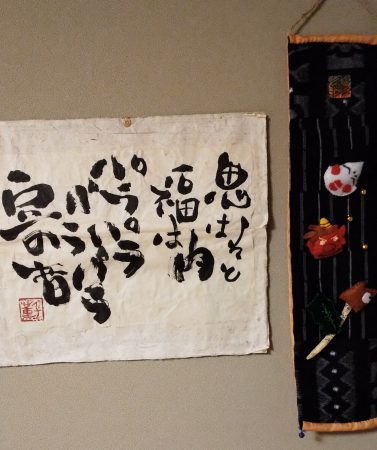 鬼はそと
福は内
パラパラ
パラパラ
豆の音